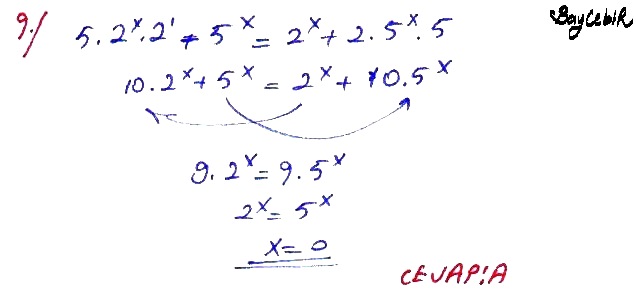 9-) 5.2ˣ.2¹ + 5ˣ = 2ˣ + 2.5ˣ.5
BayCebiR
10.2ˣ + 5ˣ = 2ˣ + 10.5ˣ
9.2ˣ = 9.5ˣ
2ˣ = 5ˣ
x = 0
CEVAP:A